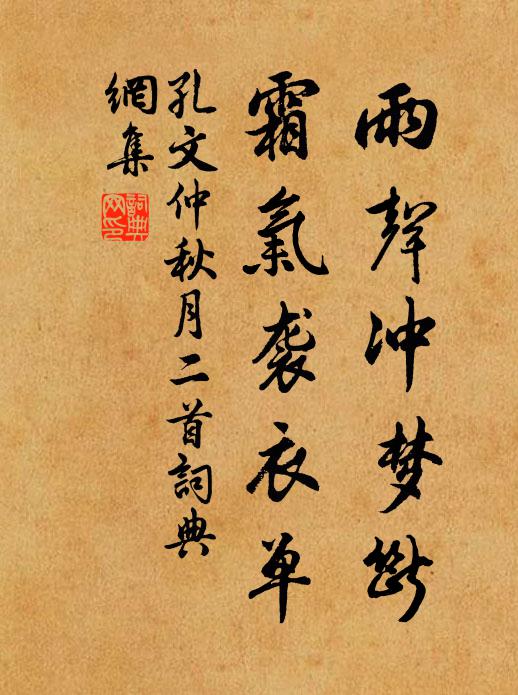 雨聲冲梦斷
霜氣袭衣单
孔文仲秋月二首詞典
網集
詞典
网印